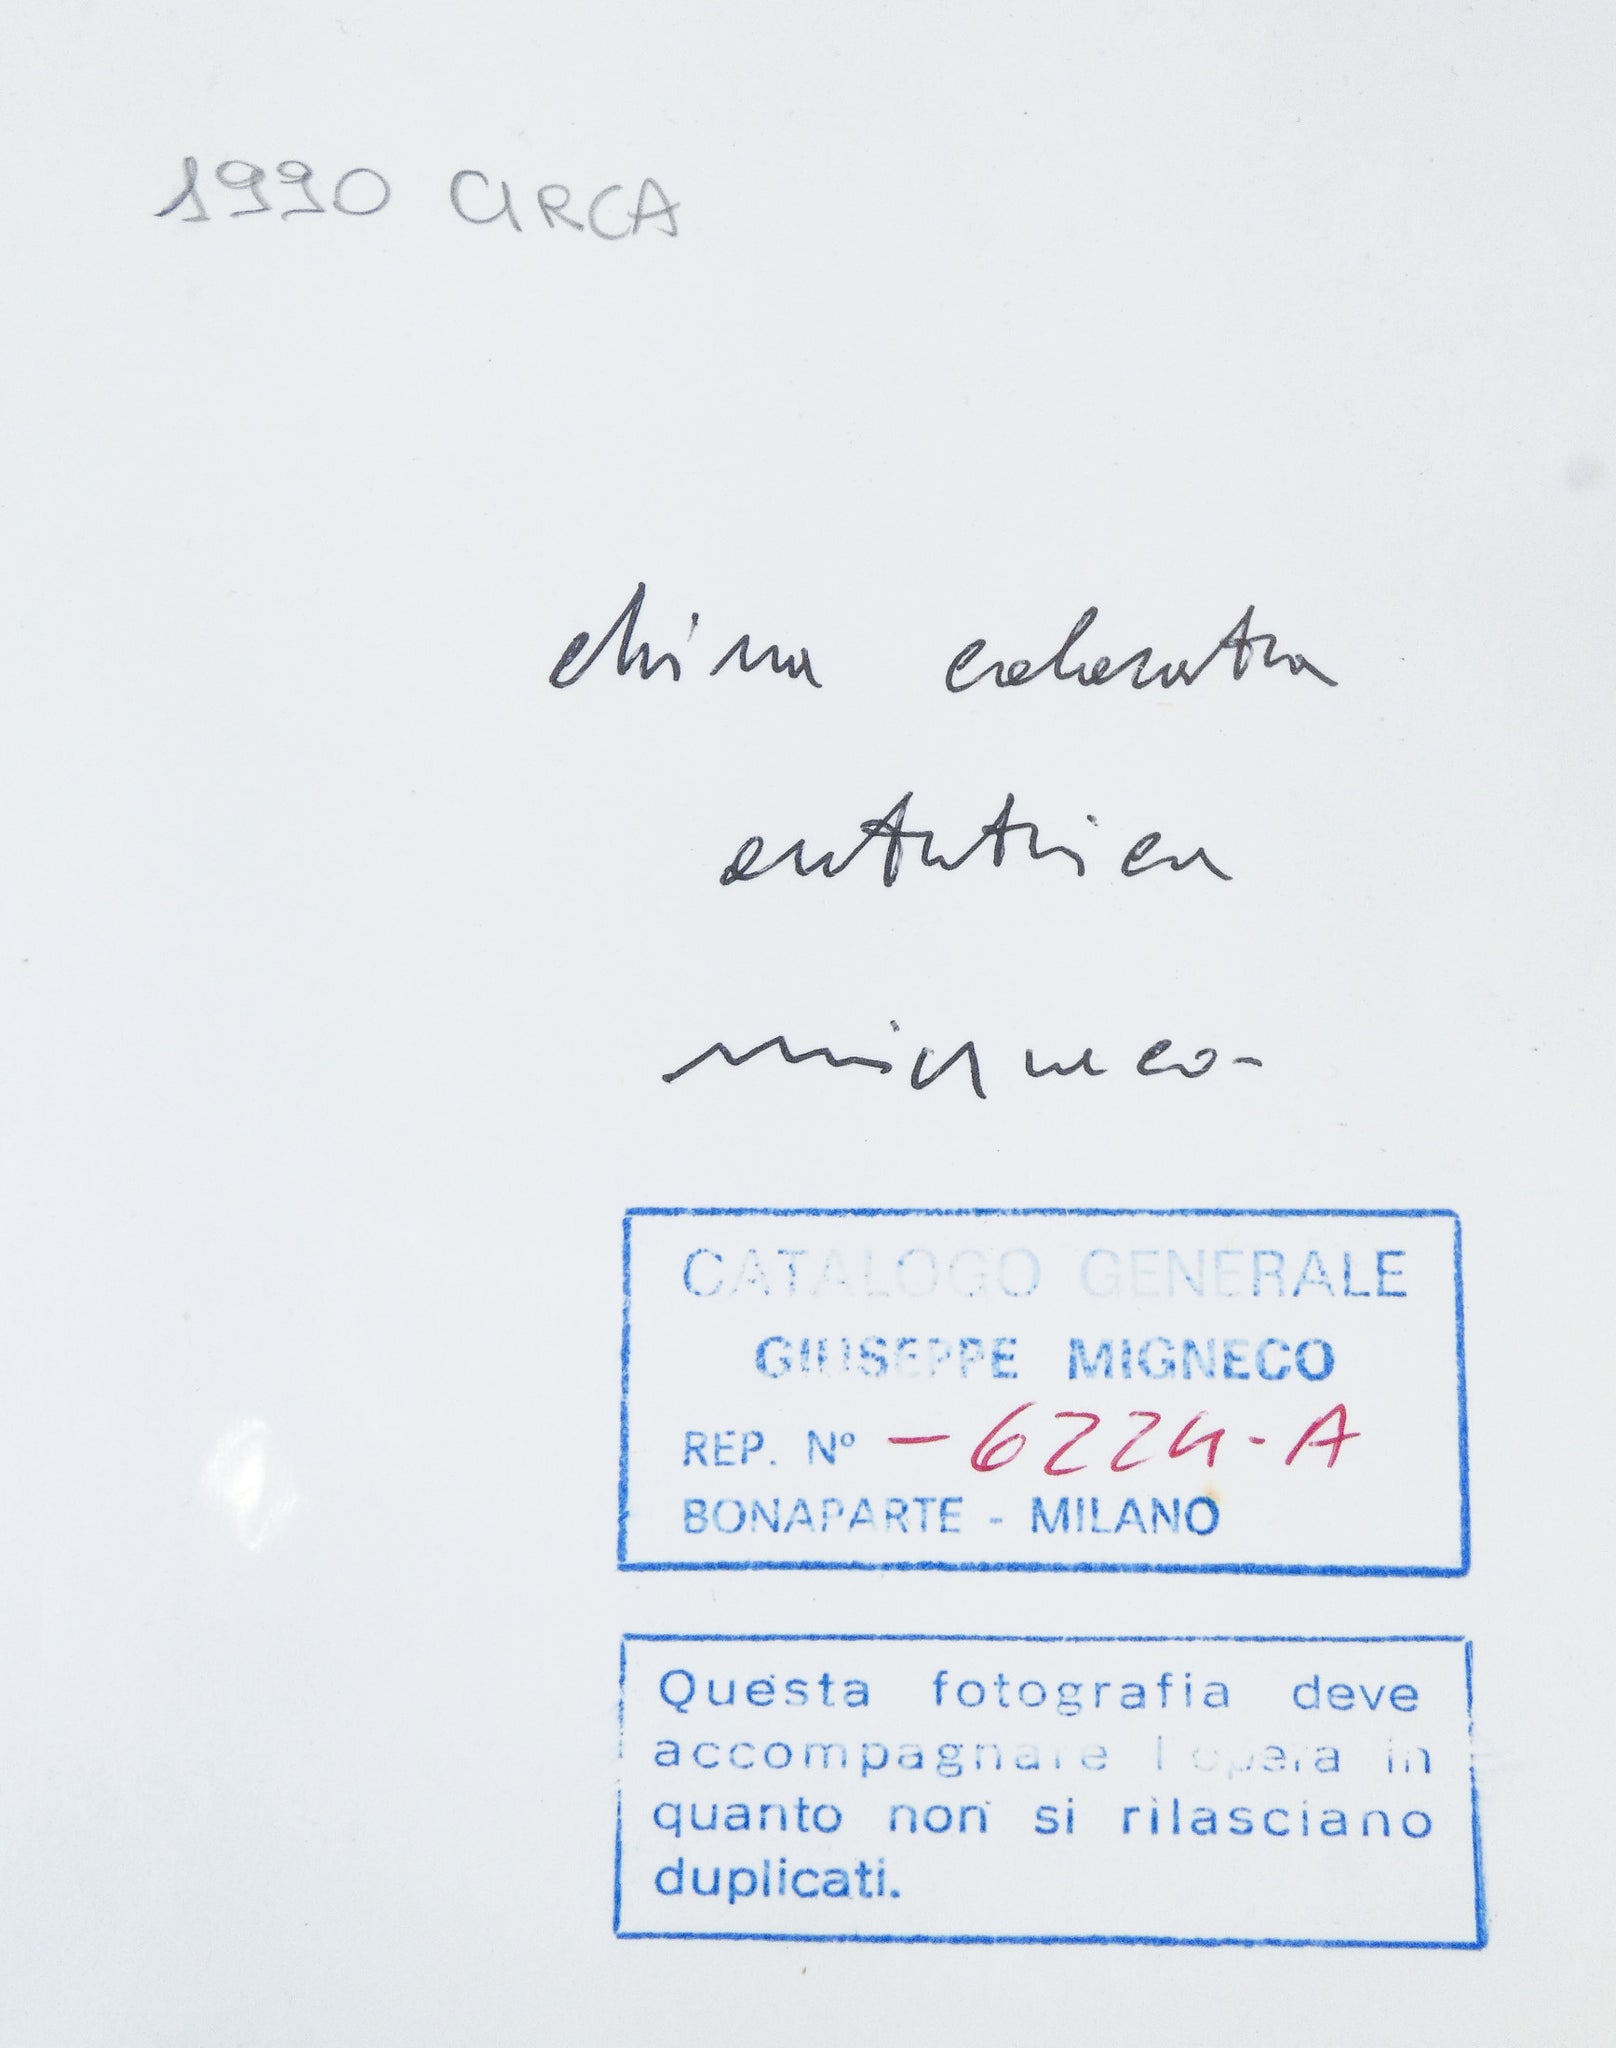 1990 CIRCA
china colorata
autentica
migneco-
CATALOGO GENERALE
GIUSEPPE MIGNECO
REP. Nº - 6224-A
BONAPARTE - MILANO
Questa fotografia deve
accompagnare l'opera in
quanto non si rilasciano
duplicati.